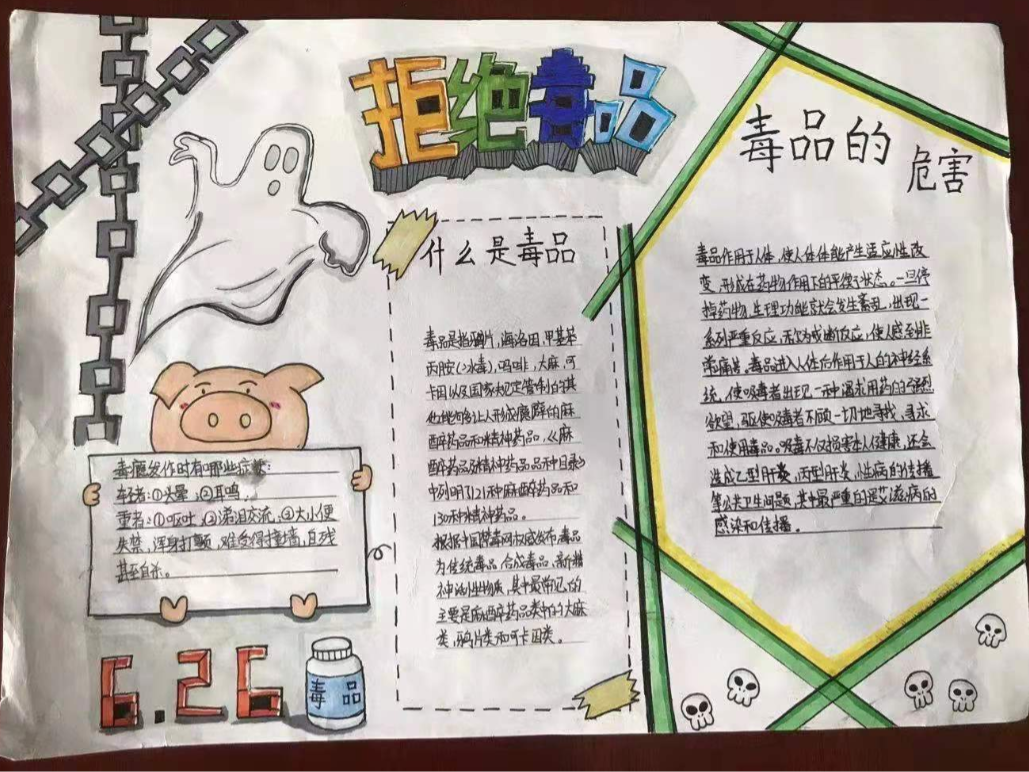 拒绝毒品
什么是毒品
毒品是指鸦片，海洛因，甲基苯
丙胺(冰毒)，吗啡，大麻，可
卡因以及国家规定管制的其
他能够让人形成瘾癖的麻
醉药品和精神药品，《麻
醉药品及精神药品品种目录》
中列明了121种麻醉药品和
130种精神药品。
根据中国禁毒网权威发布，毒品
为传统毒品，合成毒品，新精
神活性物质，其中最常见的
主要是麻醉药品类中的大麻
类，鸦片类和可卡因类。
毒瘾发作时有哪些症状：
轻者：①头晕，②耳鸣，
重者：①呕吐，②涕泪交流，③大小便
失禁，浑身打颤，难受得撞墙，自残
甚至自杀。
6.26
毒品
毒品的
危害
毒品作用于人体，使人体体能产生适应性改
变，形成在药物作用下的平衡状态。一旦停
掉药物，生理功能就会发生紊乱，出现一
系列严重反应，称为戒断反应，使人感到非
常痛苦，毒品进入人体后作用于人的神经系
统，使吸毒者出现一种渴求用药的强烈
欲望，驱使吸毒者不顾一切地寻找、寻求
和使用毒品。吸毒不仅损害本人健康，还会
造成乙型肝炎，丙型肝炎，性病的传播
等公共卫生问题，其中最严重的是艾滋病的
感染和传播。